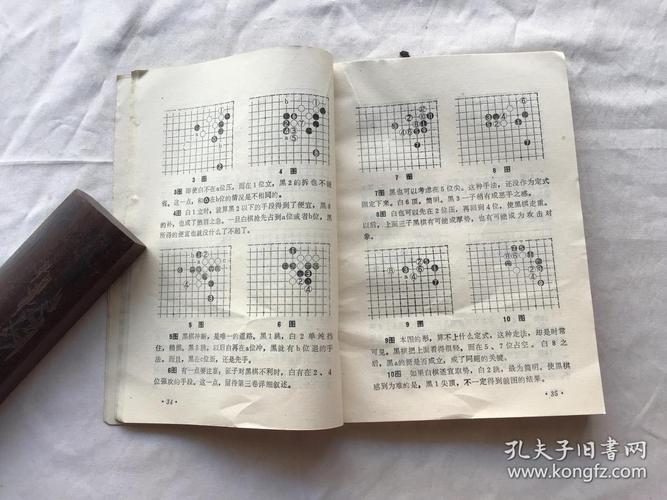 3 图
4 图
3图 即使白不在a位压,而在1位立,黑2的折也不能
省。这一点,和 在b位的情况是不相同的。
4图 白1立时,就算黑2以下的手段得到了便宜,黑8
的补,也成了当务之急。一旦白棋抢先占到a位或者b位,黑
所得的便宜也就没什么了不起了。
5 图
6 图
5图 黑棋冲断,是唯一的道路。黑1跳,白2单纯挡
住,稍损。黑3跳,以后白再在a位冲,黑就有b位退的手
法。而且,黑在c位压,还是先手。
6图 有一点要注意,征子对黑棋不利时,白有在2、4
位强攻的手段。这一点,留待第三卷详细叙述。
·34·
7 图
8 图
7图 黑也可以考虑在5位尖。这种手法,还没作为定式
固定下来。白6顶,简明。黑3一子稍有成恶手之感。
8图 白也可以先在2位压,再回到4位。使黑棋走重。
以后,上面三子黑有可能成厚势,也有可能成为攻击对
象。
9 图
10 图
9图 本图的形,算不上什么定式,这种走法,却是时常
可见。黑棋把上面看得很轻,而在5、7位占空。白8之
后,黑a的挺是否成立,成了问题的关键。
10图 如果白棋适宜取势,白2跳,最为简明。使黑棋
感到为难的是,黑1尖顶,不一定得到前图的结果。
·35·
孔夫子旧书网
www.kongfz.com